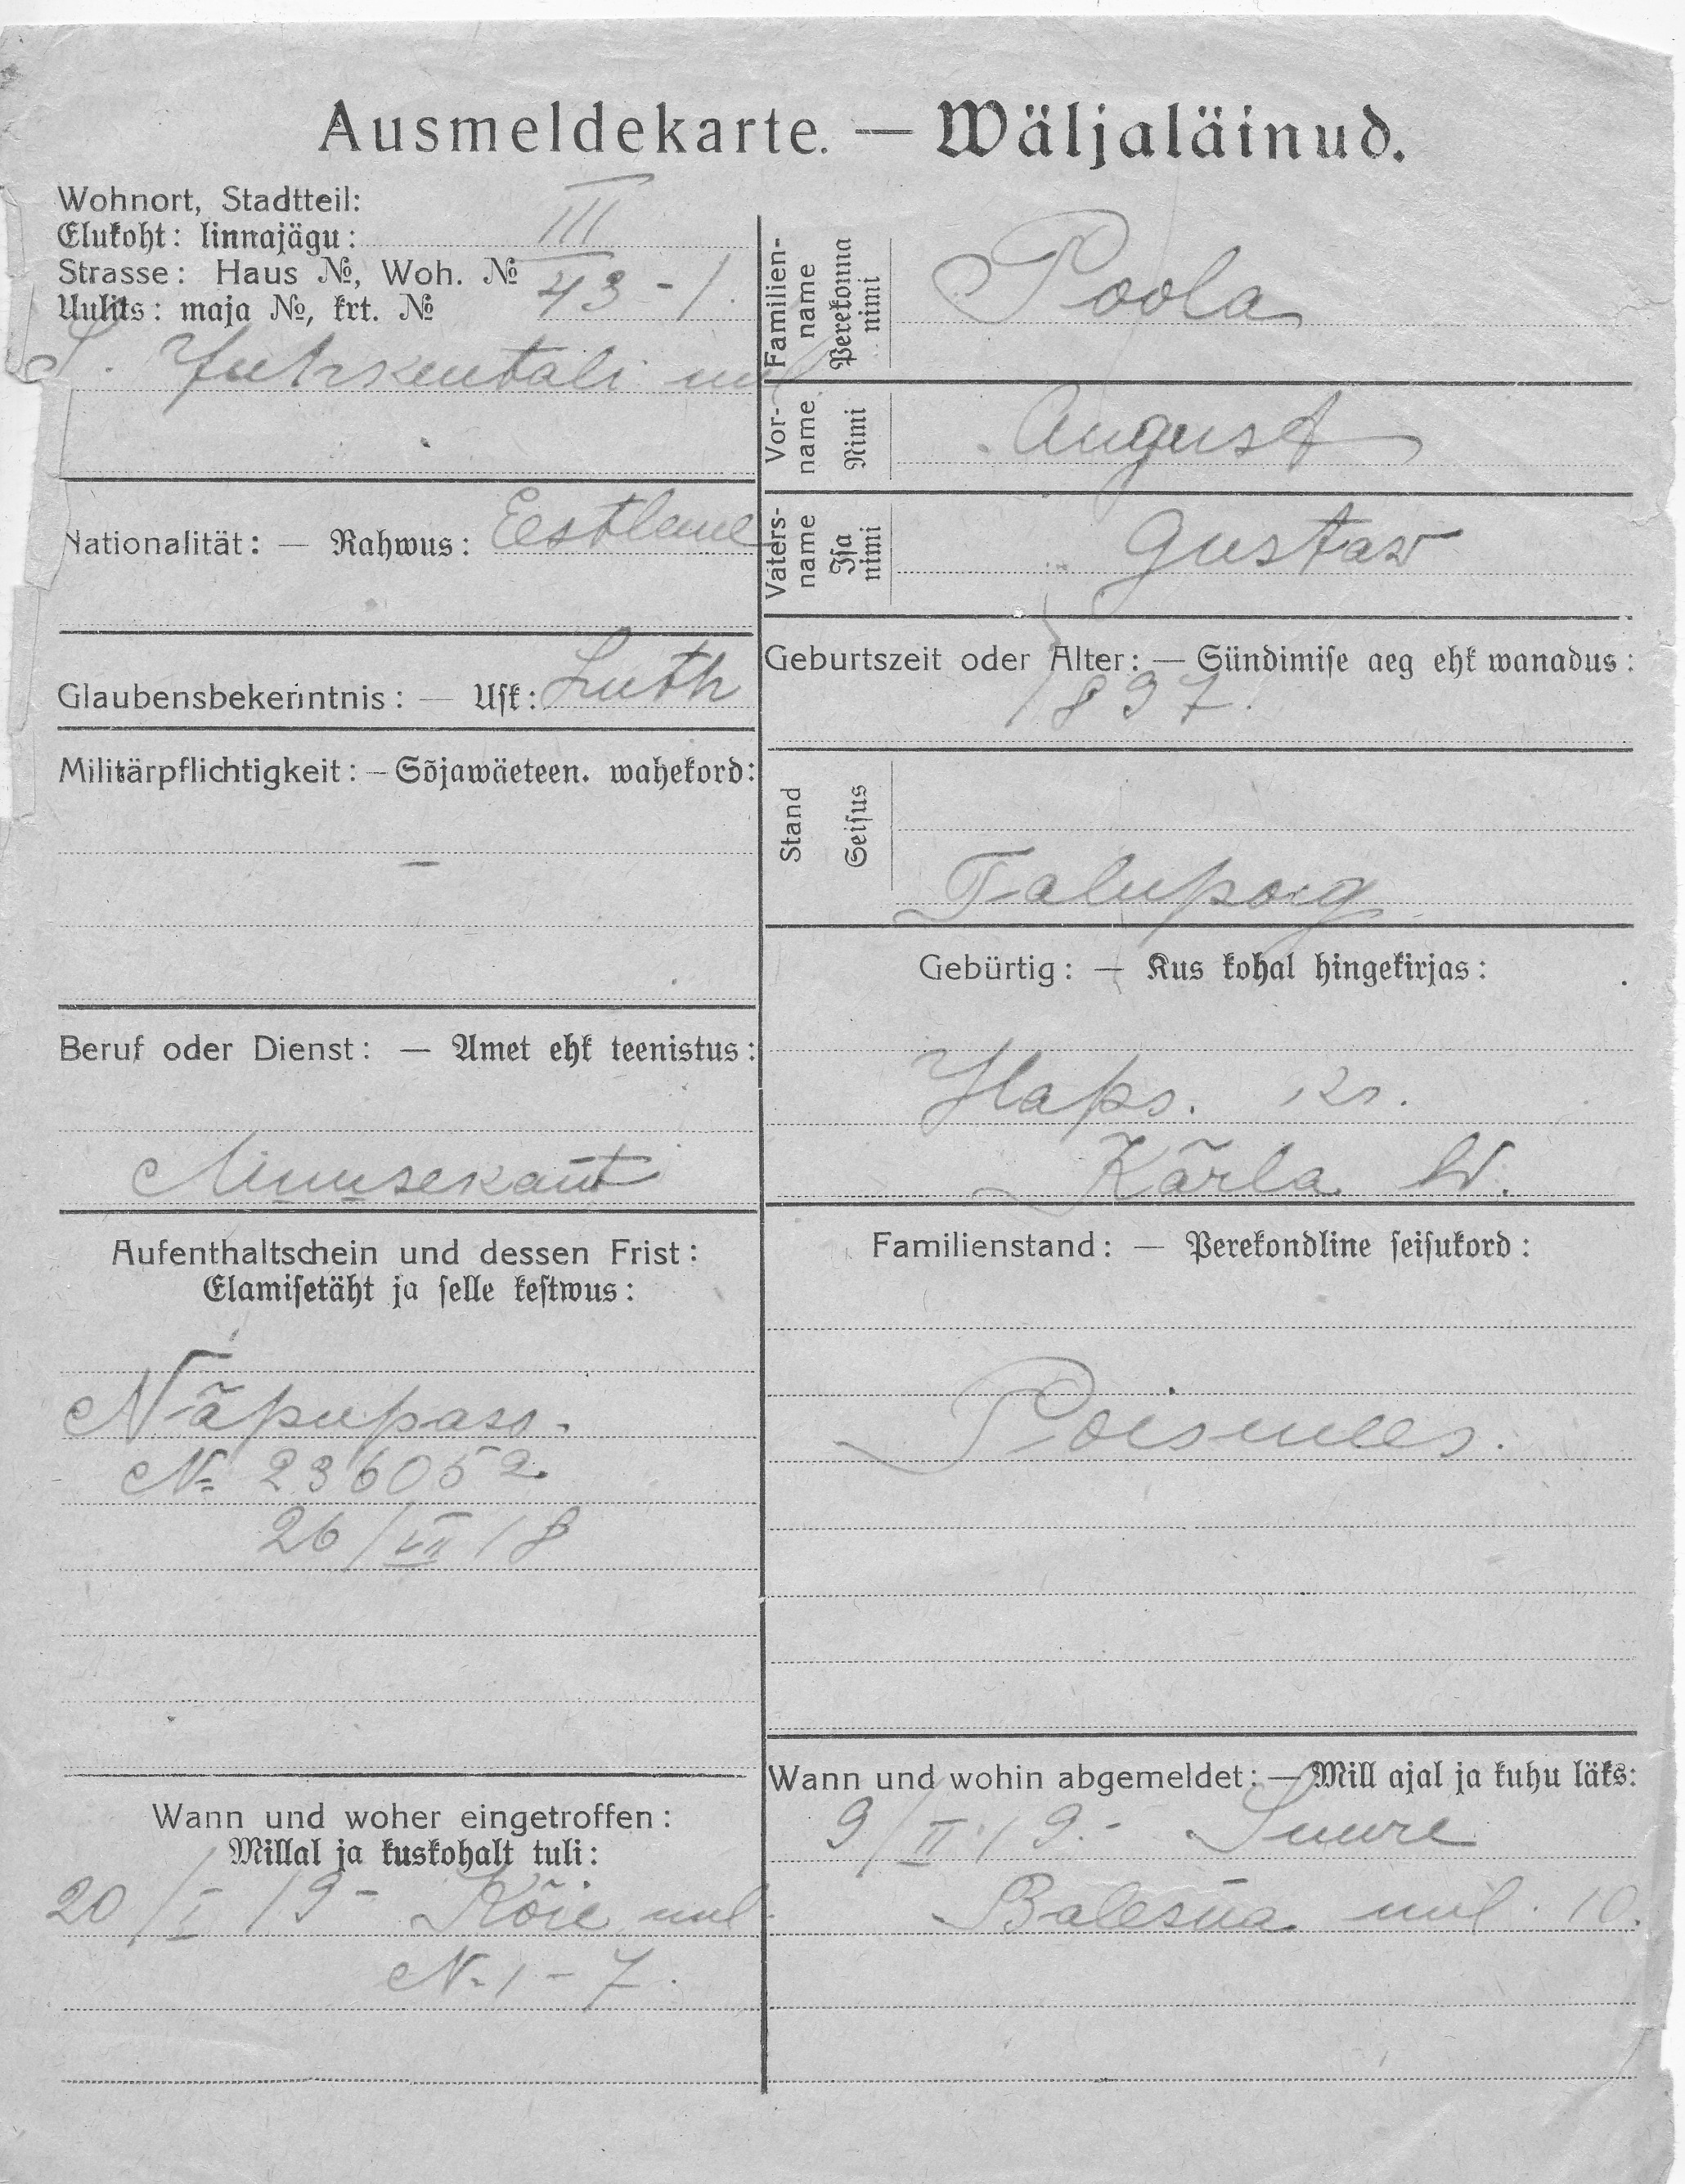 Ausmeldekarte. — Wäljaläinud.
Wohnort, Stadtteil:
Elukoht: linnajägu: III
Strasse: Haus №, Woh. №
Uulits: maja №, krt. № 43 - 1.
S. Juhkentali uul
Nationalität: — Rahwus: Eestlane
Glaubensbekenntnis: — Usk: Luth
Militärpflichtigkeit: — Sõjawäeteen. wahekord:
—
Beruf oder Dienst: — Amet ehk teenistus:
Muusekant
Aufenthaltschein und dessen Frist:
Elamisetäht ja selle kestwus:
Näpupass.
N. 236052
26/VII 18
Wann und woher eingetroffen:
Millal ja kuskohalt tuli:
20/I 19 - Kõie uul.
N. 1 - 7.
Familien-
name
Perekonna
nimi
Poola
Vor-
name
Nimi
August
Vaters-
name
Isa
nimi
Gustaw
Geburtszeit oder Alter: — Sündimise aeg ehk wanadus:
1897.
Stand
Seisus
Talupoig
Gebürtig: — Kus kohal hingekirjas:
Haps. kr.
Kärla W.
Familienstand: — Perekondline seisukord:
Poismees.
Wann und wohin abgemeldet: — Mill ajal ja kuhu läks:
9/II 19. - Suure
uul. 10.